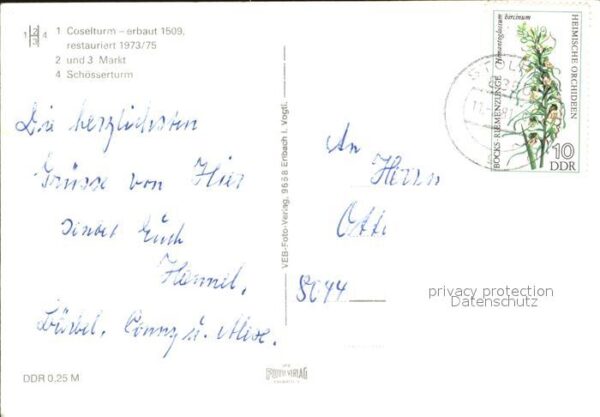 1 Coselturm – erbaut 1509,
restauriert 1973/75
2 und 3 Markt
4 Schösserturm
Die herzlichsten
Grüsse von Hier
sendet Euch
Hannel,
Bärbel, Conny u. Alex.
DDR 0,25 M
VEB-Foto-Verlag, 9658 Erlbach i. Vogtl.
FOTO VERLAG
An
Herrn
Otto
8044
privacy protection
Datenschutz
Himantoglossum hircinum
BOCKS-RIEMENZUNGE
HEIMISCHE ORCHIDEEN
10
DDR
STOLP